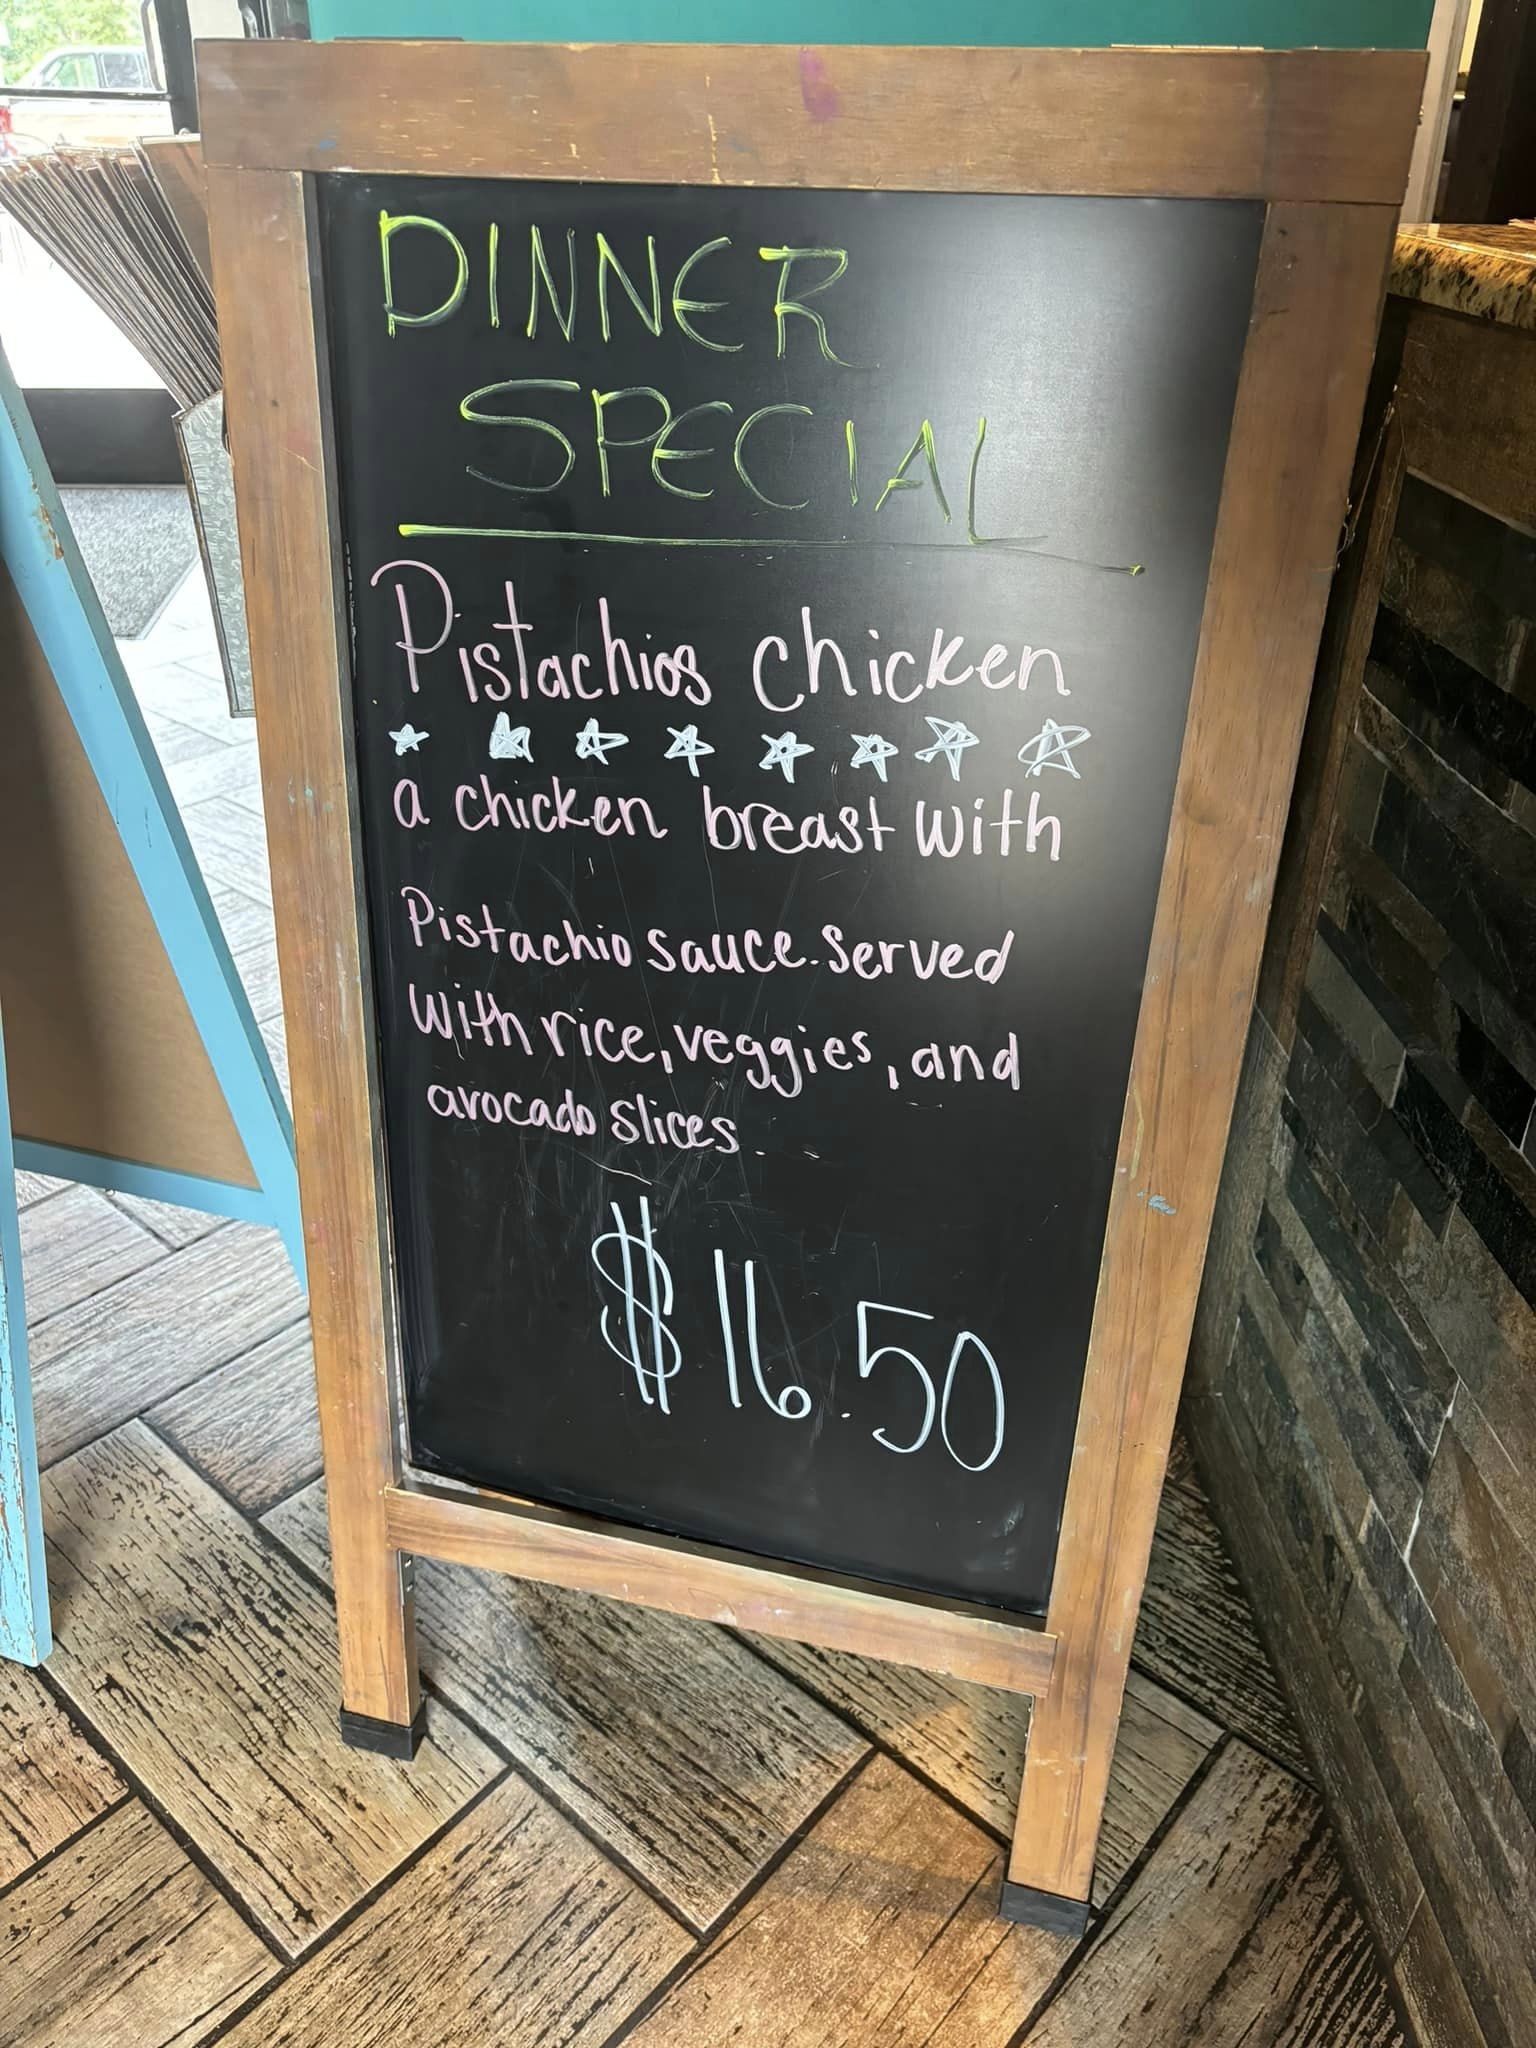 DINNER
SPECIAL
Pistachios chicken
a chicken breast with
Pistachio sauce. Served
with rice, veggies, and
avocado slices.
$16.50